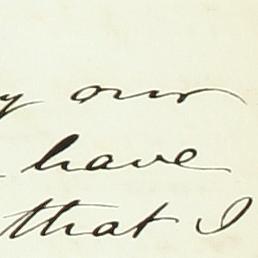 y our
have
that I